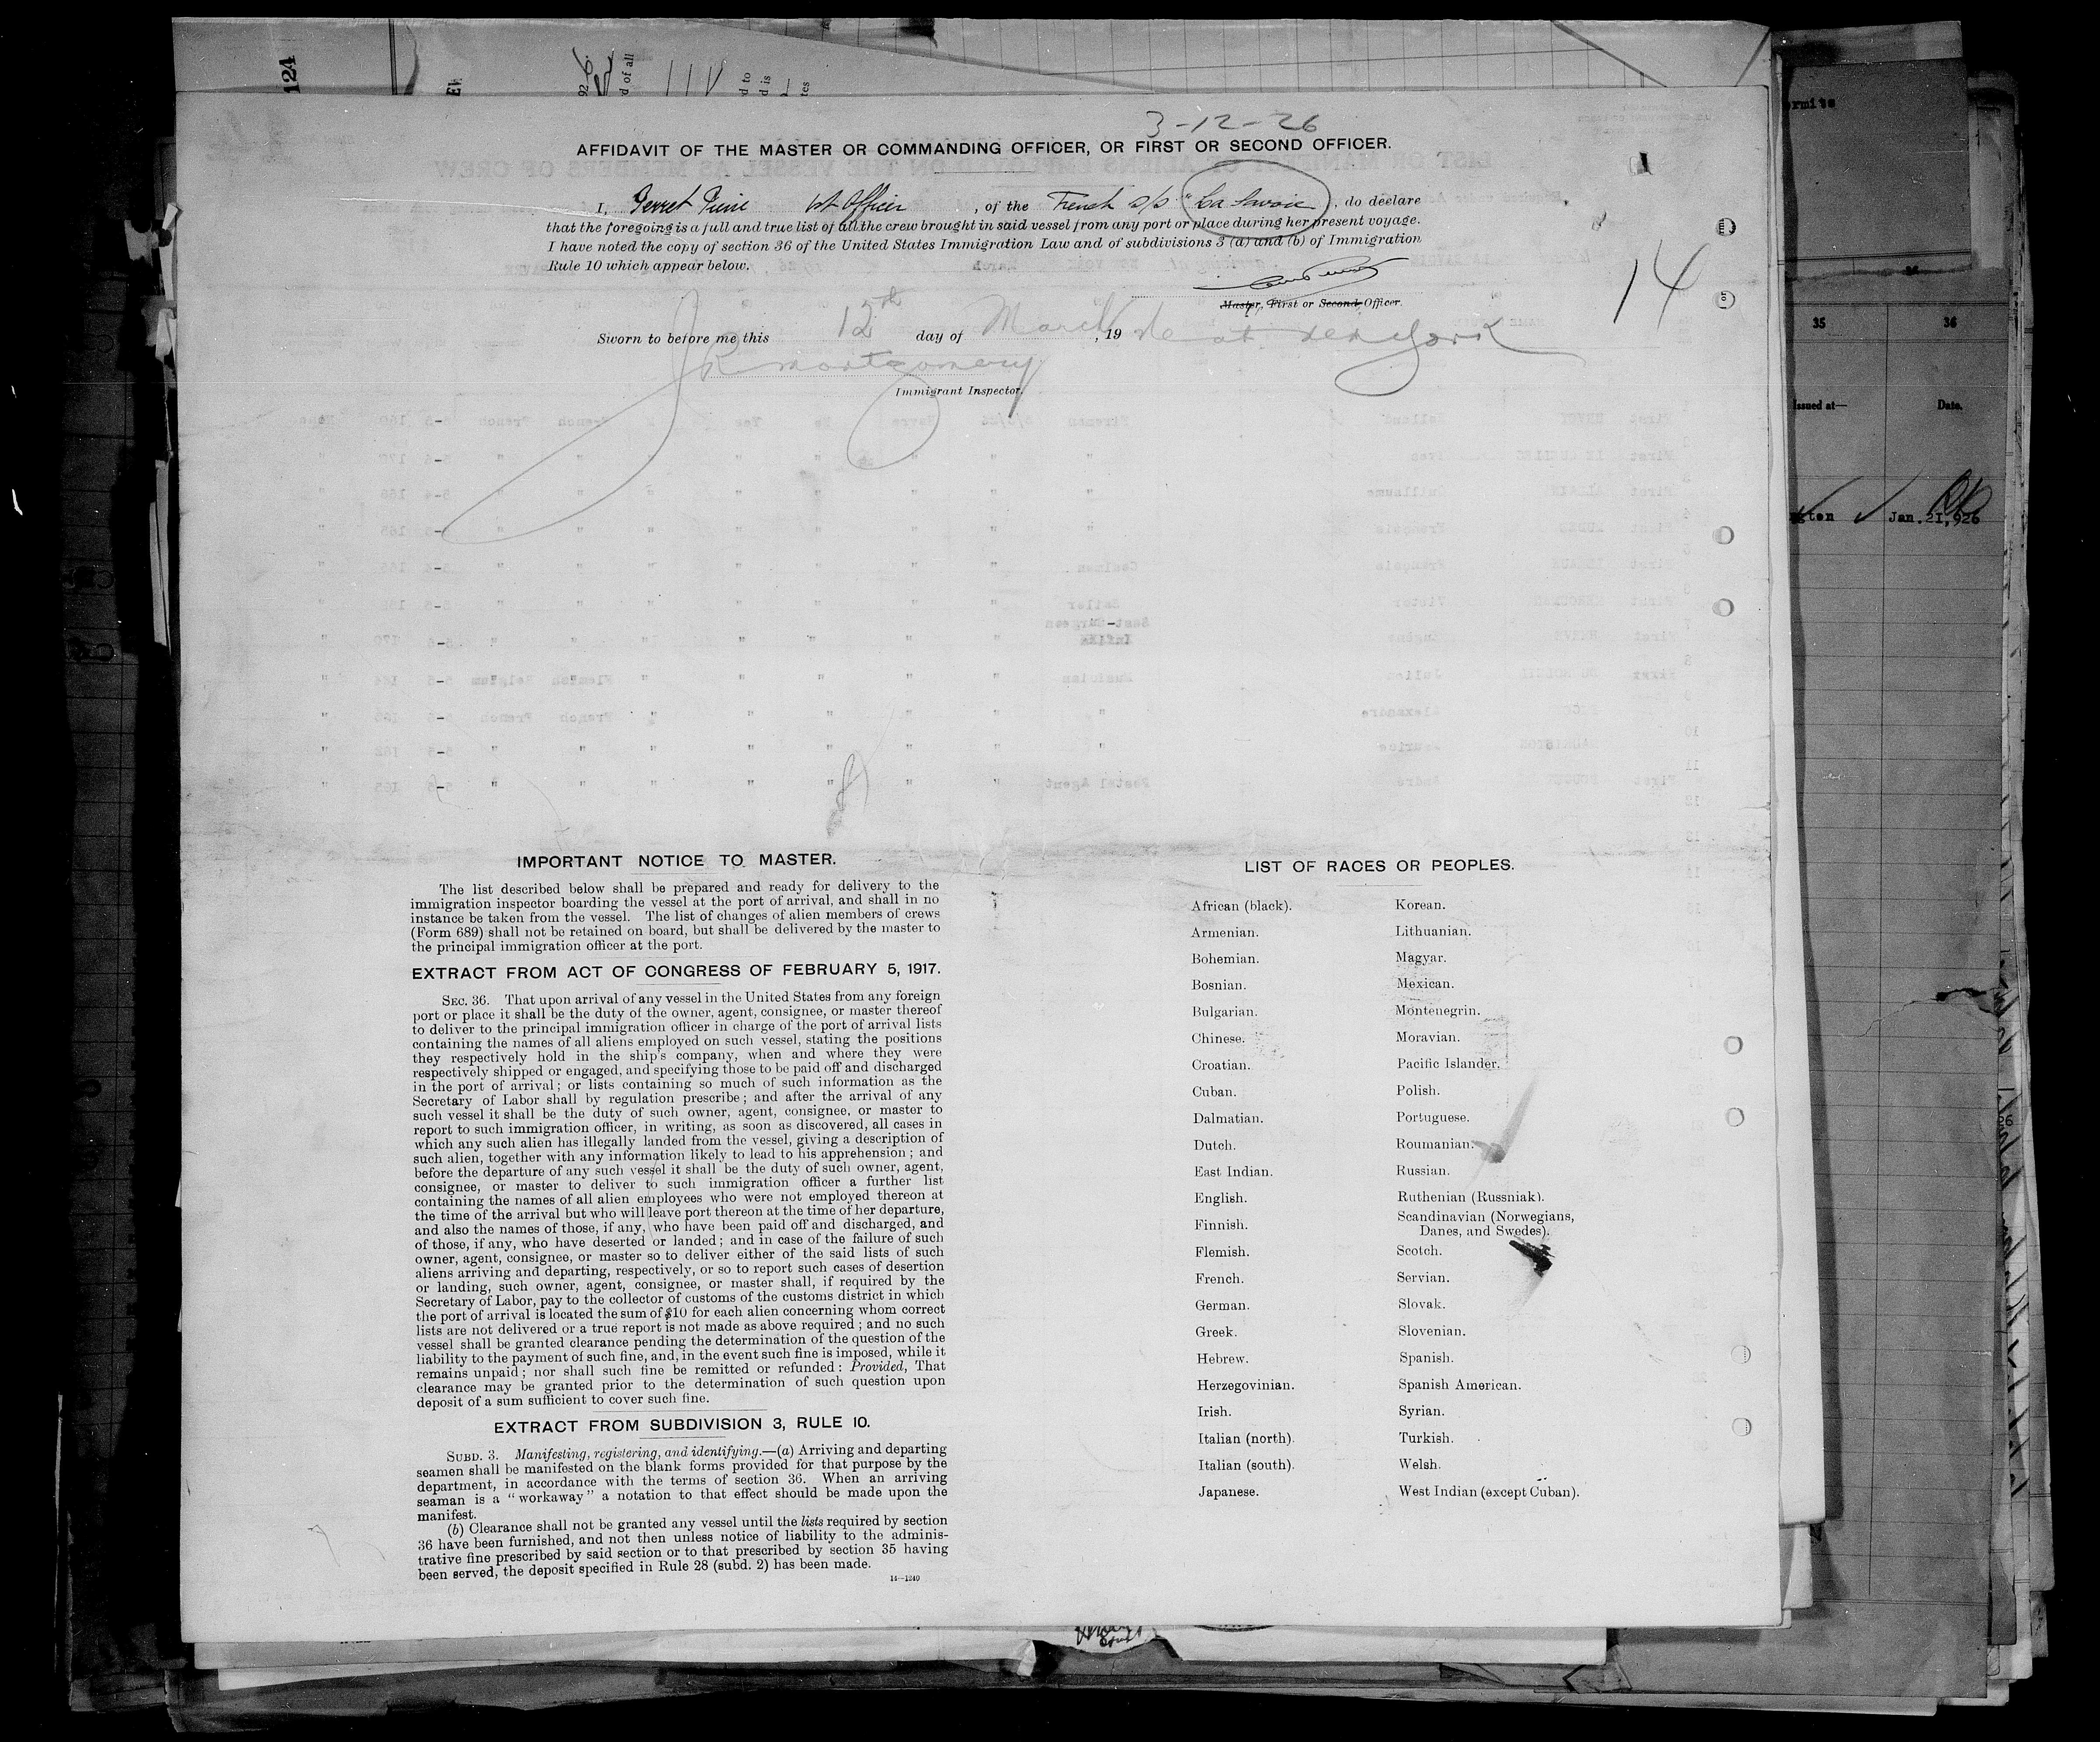 124
3-12-26
AFFIDAVIT OF THE MASTER OR COMMANDING OFFICER, OR FIRST OR SECOND OFFICER.
I, Perret Pierre 1st Officer, of the French s/s "La Savoie", do declare
that the foregoing is a full and true list of all the crew brought in said vessel from any port or place during her present voyage.
I have noted the copy of section 36 of the United States Immigration Law and of subdivisions 3 (a) and (b) of Immigration
Rule 10 which appear below.
14
Master, First or Second Officer.
Sworn to before me this 12th day of March, 19 at New York
J R Montgomery
Immigrant Inspector.
IMPORTANT NOTICE TO MASTER.
The list described below shall be prepared and ready for delivery to the
immigration inspector boarding the vessel at the port of arrival, and shall in no
instance be taken from the vessel. The list of changes of alien members of crews
(Form 689) shall not be retained on board, but shall be delivered by the master to
the principal immigration officer at the port.
EXTRACT FROM ACT OF CONGRESS OF FEBRUARY 5, 1917.
SEC. 36. That upon arrival of any vessel in the United States from any foreign
port or place it shall be the duty of the owner, agent, consignee, or master thereof
to deliver to the principal immigration officer in charge of the port of arrival lists
containing the names of all aliens employed on such vessel, stating the positions
they respectively hold in the ship's company, when and where they were
respectively shipped or engaged, and specifying those to be paid off and discharged
in the port of arrival; or lists containing so much of such information as the
Secretary of Labor shall by regulation prescribe; and after the arrival of any
such vessel it shall be the duty of such owner, agent, consignee, or master to
report to such immigration officer, in writing, as soon as discovered, all cases in
which any such alien has illegally landed from the vessel, giving a description of
such alien, together with any information likely to lead to his apprehension; and
before the departure of any such vessel it shall be the duty of such owner, agent,
consignee, or master to deliver to such immigration officer a further list
containing the names of all alien employees who were not employed thereon at
the time of the arrival but who will leave port thereon at the time of her departure,
and also the names of those, if any, who have been paid off and discharged, and
of those, if any, who have deserted or landed; and in case of the failure of such
owner, agent, consignee, or master so to deliver either of the said lists of such
aliens arriving and departing, respectively, or so to report such cases of desertion
or landing, such owner, agent, consignee, or master shall, if required by the
Secretary of Labor, pay to the collector of customs of the customs district in which
the port of arrival is located the sum of $10 for each alien concerning whom correct
lists are not delivered or a true report is not made as above required; and no such
vessel shall be granted clearance pending the determination of the question of the
liability to the payment of such fine, and, in the event such fine is imposed, while it
remains unpaid; nor shall such fine be remitted or refunded: Provided, That
clearance may be granted prior to the determination of such question upon
deposit of a sum sufficient to cover such fine.
EXTRACT FROM SUBDIVISION 3, RULE 10.
SUBD. 3. Manifesting, registering, and identifying.—(a) Arriving and departing
seamen shall be manifested on the blank forms provided for that purpose by the
department, in accordance with the terms of section 36. When an arriving
seaman is a "workaway" a notation to that effect should be made upon the
manifest.
(b) Clearance shall not be granted any vessel until the lists required by section
36 have been furnished, and not then unless notice of liability to the adminis-
trative fine prescribed by said section or to that prescribed by section 35 having
been served, the deposit specified in Rule 28 (subd. 2) has been made.
14—1240
LIST OF RACES OR PEOPLES.
African (black).
Armenian.
Bohemian.
Bosnian.
Bulgarian.
Chinese.
Croatian.
Cuban.
Dalmatian.
Dutch.
East Indian.
English.
Finnish.
Flemish.
French.
German.
Greek.
Hebrew.
Herzegovinian.
Irish.
Italian (north).
Italian (south).
Japanese.
Korean.
Lithuanian.
Magyar.
Mexican.
Montenegrin.
Moravian.
Pacific Islander.
Polish.
Portuguese.
Roumanian.
Russian.
Ruthenian (Russniak).
Scandinavian (Norwegians,
Danes, and Swedes).
Scotch.
Servian.
Slovak.
Slovenian.
Spanish.
Spanish American.
Syrian.
Turkish.
Welsh.
West Indian (except Cuban).
35 36
Issued at— Date.
Jan. 21, 926